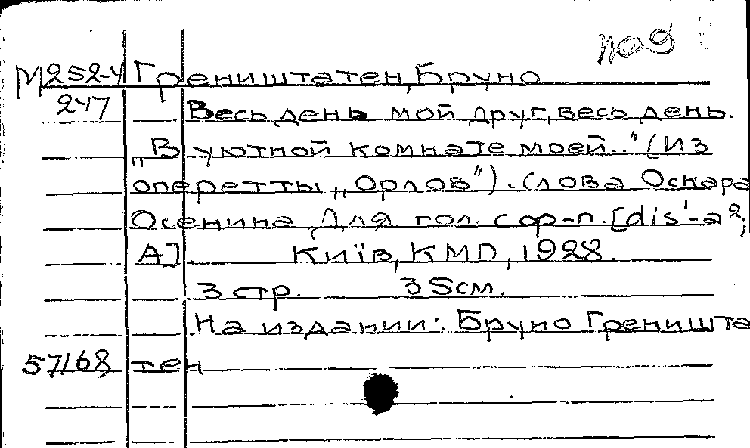 М252-4 Греништатен, Бруно
247 Весь день мой друг, весь день.
„В уютной комнате моей.." (Из
оперетты „Орлов"). Слова Оскара
Осенина. Для гол. с ор-п. [dis'-a²;
A] Київ, КМП, 1928.
3 стр. 35см.
На издании: Бруно Греништа
57168 тен